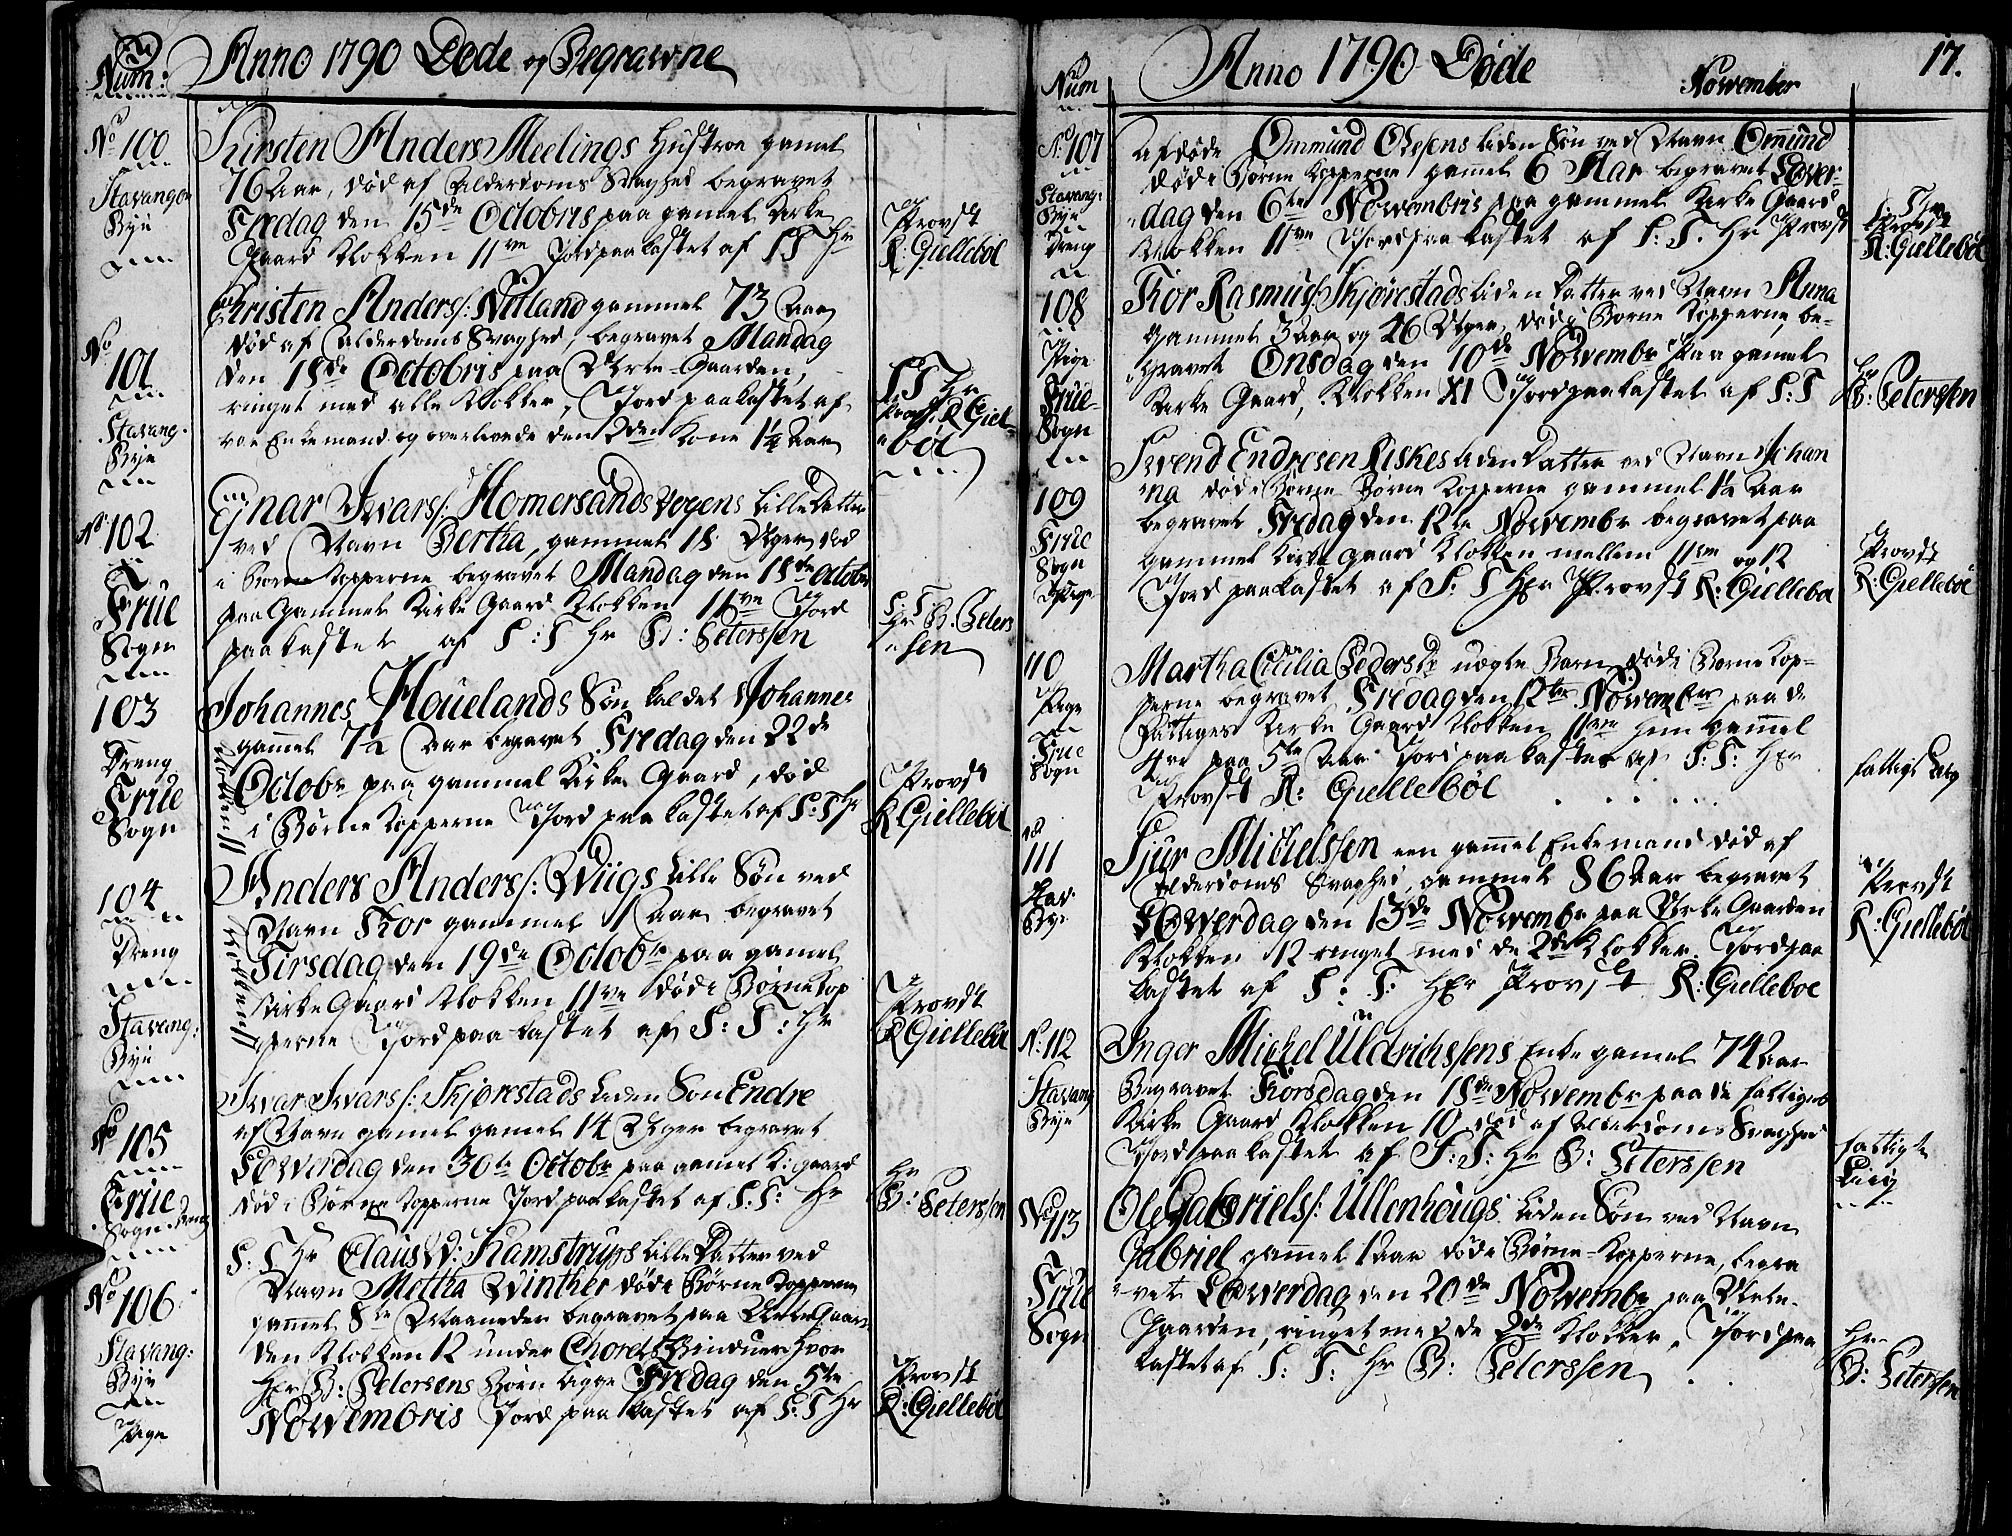 Num:
Anno 1790 Døde og Begrawne
No 100
Stavanger
Bye
Kirsten Anders Meelings Hustroe gamel
76 Aar, død af Alderdoms Svaghed begravet
Fredag den 15de Octobris paa gamel Kirke
Gaard Klokken 11ve Jordpaakastet af S T Hr
Provst
R: Gielleböl
No 101
Stavang:
Bye
Christen Anders/: Nütland gammel 73 Aar
død af Alderdoms Svaghed, begravet Mandag
den 18de Octobris paa Urte-Gaarden,
ringet med alle Klokker, Jord paakastet af
var Enkemand og overlevede den 2den Kone 1½ Aar
S T Hr
Provst R Giel-
böl
No 102
Frue
Sogn
Ejnar Iwars/: Homersands Vogens Lille Datter
ved Navn Bertha, gammel 18 Uger død
i Børne Kopperne begravet Mandag den 18de Octobr
paa Gammel Kirke Gaard Klokken 11ve Jord
paakastet af S: T Hr B: Peterssen
S: T:
Hr B. Peters
sen
103
Dreng
Frue
Sogn
Johannes Houelands Søn kaldet Johannes
gammel 7½ Aar begravet Fredag den 22de
Octobr paa gammel Kirke Gaard, død
i Børne Kopperne Jord paakastet af S: T Hr
Klokken 11
Provst
R Gielleböl
104
Dreng
Stavang:
Bye
Anders Anders/: Wiigs Lille Søn ved
Navn Tor gammel 1 Aar begravet
Tirsdag den 19de Octobr paa gamel
Kirke Gaard Klokken 11ve død i Børne Kop
perne Jord paakastet af S: T: Hr
Provst
R Gielleböl
No 105
Frue
Sogn Dreng
Iwar Iwars/: Skjørestads Liden Søn Endre
af Navn gamel gamel 14 Uger begravet
Løwerdag den 30te Octobr paa gamel K: gaard
død i Børne Kopperne Jord paakastet af S. T: Hr
Hr
B: Peterssen
No 106
Stavang:
Bye
Pige
S: T Hr Claus W: Kamstrups Lille Datter ved
Navn Mettha Winther død i Børne Kopperne
gammel 8te Maaneder begravet paa Urte Gaar
den Klokken 12 under Chorets Vinduer hvor
Hr B: Petersens Børn ligge Fredag den 5te
Nowembris Jord paa kastet af S: T Hr
Provst
R: Gielleböl
Num
Anno 1790 Døde
Nowember
17.
No 107
Stavang:
Bye
Dreng
Afdøde Ommund Olesens liden Søn ved Navn Omund
død i Børne Kopperne gamel 6 Aar begravet Løver-
dag den 6te Nowembris paa gammel Kirke Gaard
Klokken 11ve Jordpaa kastet af S: T. Hr Provst
S. T Hr
Provst
R: Gielleböl
108
Pige
Frue-
Sogn
Tor Rasmus/: Skjørestads liden Datter ved Navn Anna
gammel 3 Aar og 26 Uger, død i Børne Kopperne, be-
gravet Onsdag den 10de Nowembr paa gamel
Kirke Gaard, Klokken XI Jordpaakastet af S: T
Hr
B: Peterssen
109
Frue
Sogn
Pige
Svend Endresen Riskes liden Datter ved Navn Johan
na død i Børne Børne Kopperne gammel 1½ Aar
begravet Fredag den 12te Nowembr begravet paa
gammel Kirke gaard Klokken mellem 11ve og 12
Jord paakastet af S: T Hr Provst R: Gielleböl
Provst
R: Gielleböl
110
Pige
Frue
Sogn
Martha Cicilia Peders D. uægte Barn død i Børne Kop-
perne begravet Fredag den 12te Nowembr paa de
Fattiges Kirke Gaard Klokken 11ve gammel
4re paa 5te Aar Jord paa kastet af S: T: Hr
Provst R: Gielleböl
fattigt Liig
No
111
Stav:
Bye
Sjur Michelssen een gammel Enkemand død af
Alderdoms Svaghed, gammel 86 Aar begravet
Løwerdag den 13de Nowembr paa Urte Gaarden
Klokken 12 ringet med de 2de Klokker. Jord paa
kastet af S: T: Hr Provst R: Gielleböl
Provst
R: Gielleböl
No: 112
Stavang
Bye
Inger Michel Uldrichssens Enke gamel 74 Aar
Begravet Torsdag den 18de Nowembr paa de fattiges
Kirke Gaard Klokken 10 død af Alderdoms Svaghed
Jord paa kastet af S: T: Hr B: Peterssen
fattigt
Liig
No 113
Frue
Sogn
Ole Gabriels/: Üllenhougs liden Søn ved Navn
Gabriel gammel 1 Aar død i Børne-Kopperne, begra
vet Løwerdag den 20de Nowembr paa Urte-
Gaarden, ringet med de 2de Klokker, Jord paa
kastet af S: T: Hr B: Peterssen
Hr
B: Peterssen